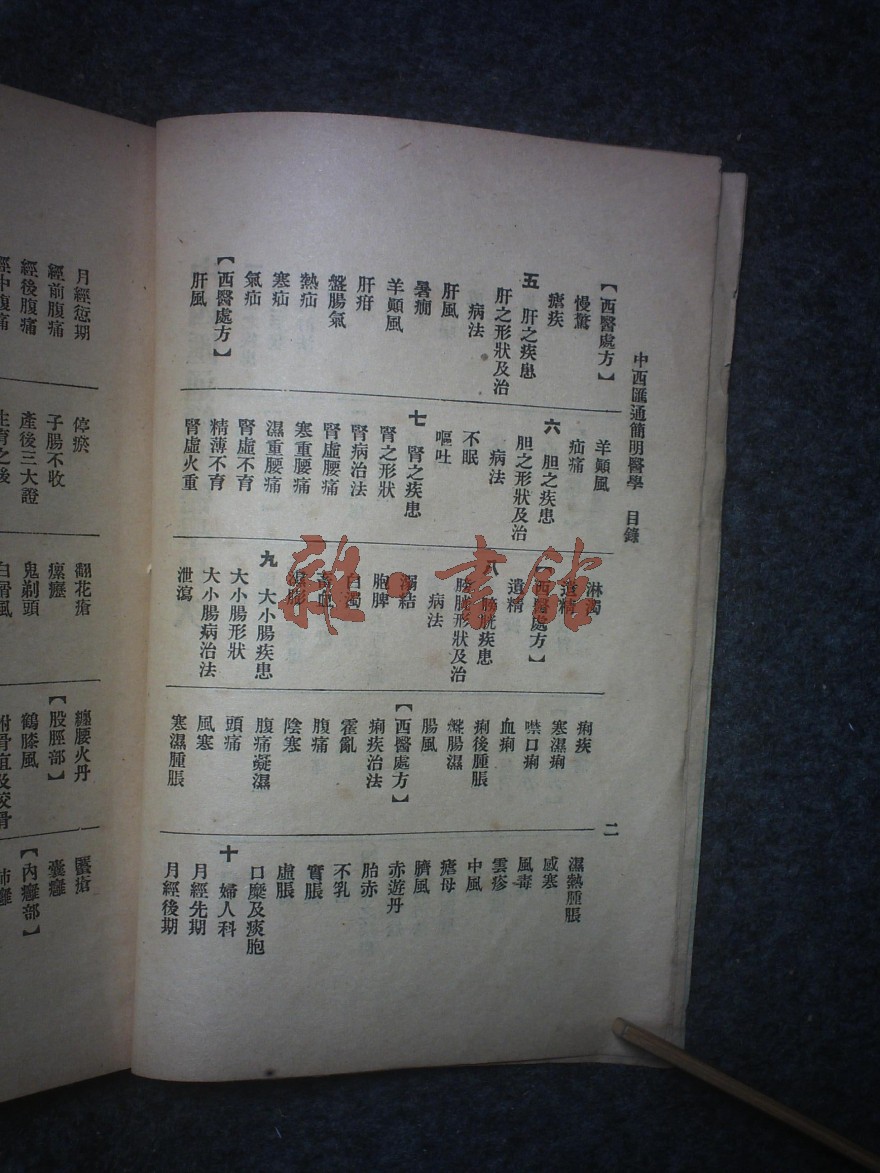 中西匯通簡明醫學 目錄
二
【西醫處方】
慢驚
瘧疾
五 肝之疾患
肝之形狀及治
病法
肝風
暑癇
羊顛風
肝疳
盤腸氣
熱疝
寒疝
氣疝
【西醫處方】
肝風
羊顛風
疝痛
六 胆之疾患
胆之形狀及治
病法
不眠
嘔吐
七 腎之疾患
腎之形狀
腎病治法
腎虛腰痛
寒重腰痛
濕重腰痛
腎虛不育
精薄不育
腎虛火重
淋濁
遺精
【西醫處方】
遺精
八 膀胱疾患
膀胱形狀及治
病法
溺結
胞脾
白濁
蓄血
濕膨
九 大小腸疾患
大小腸形狀
大小腸病治法
泄瀉
痢疾
寒濕痢
噤口痢
血痢
痢後腫脹
盤腸濕
腸風
【西醫處方】
痢疾治法
霍亂
腹痛
陰寒
腹痛凝濕
頭痛
風寒
寒濕腫脹
濕熱腫脹
感寒
風毒
雲疹
中風
瘧母
臍風
赤遊丹
胎赤
不乳
實脹
虛脹
口糜及痰胞
十 婦人科
月經先期
月經後期
月經愆期
經前腹痛
經後腹痛
經中腹痛
停瘀
子腸不收
產後三大證
生育之後
翻花瘡
瘰癧
鬼剃頭
白屑風
纏腰火丹
【股脛部】
鶴膝風
附骨疽及咬骨
囊癰
【內癰部】
肺癰